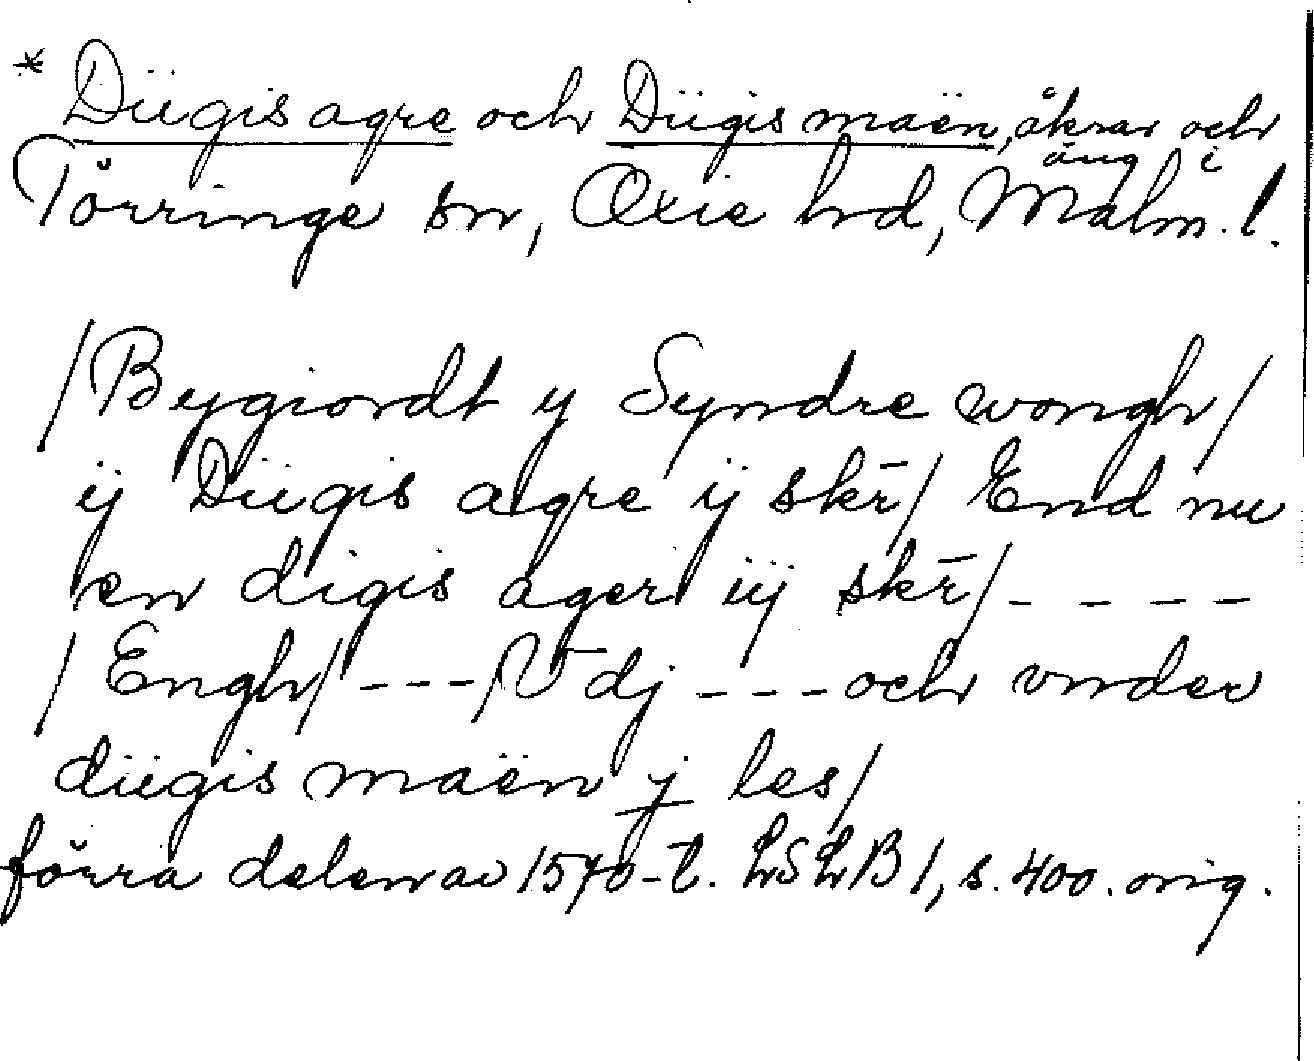 * Diigis agre och Diigis maën, åkrar och
äng i
Törringe sn, Oxie hrd, Malm. l.
/Bygiordt y Syndre wongh/
ij Diigis agre ij skr̄/ End nu
en digis ager iij skr̄/ - - - -
/Engh/ - - - / V̄ dj - - - och vnder
diigis maën j les/
förra delen av 1570-t. LSLB 1, s. 400. orig.